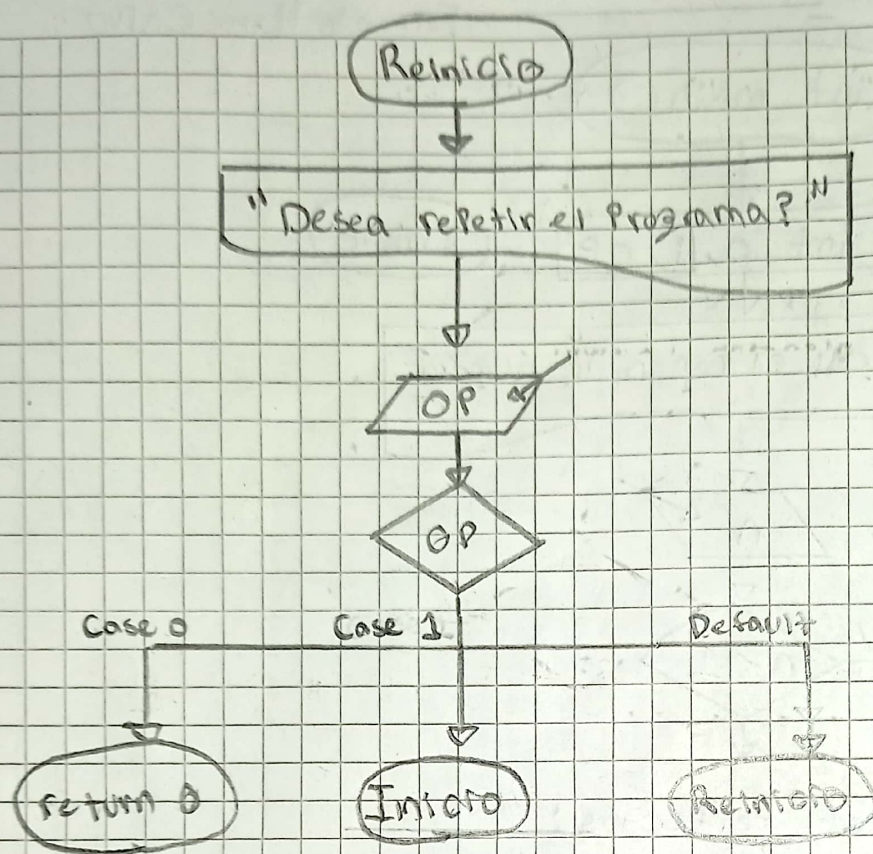 Reinicio
"Desea repetir el Programa?"
OP
OP
Case 0 Case 1 Default
return 0 Inicio Reinicio